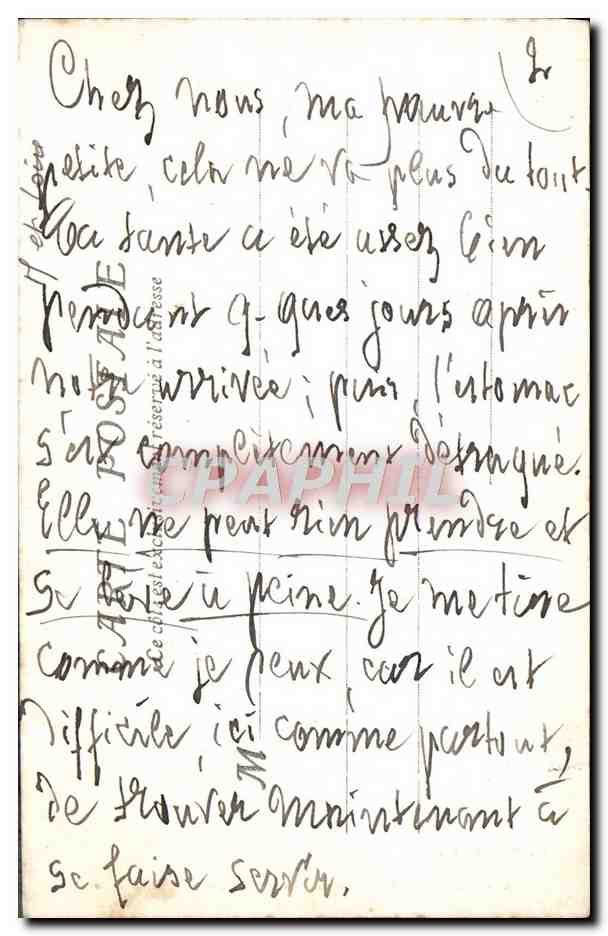 2
Chez nous, ma pauvre
petite, cela ne va plus du tout.
Ta tante a été assez bien
pendant q-ques jours après
notre arrivée ; puis, l'estomac
s'est complètement détraqué.
Elle ne peut rien prendre et
se lève à peine. Je me tire
comme je peux, car il est
difficile, ici comme partout,
de trouver maintenant à
se faire servir.
CARTE POSTALE
Ce côté est exclusivement réservé à l'adresse
M
CPAPHIL